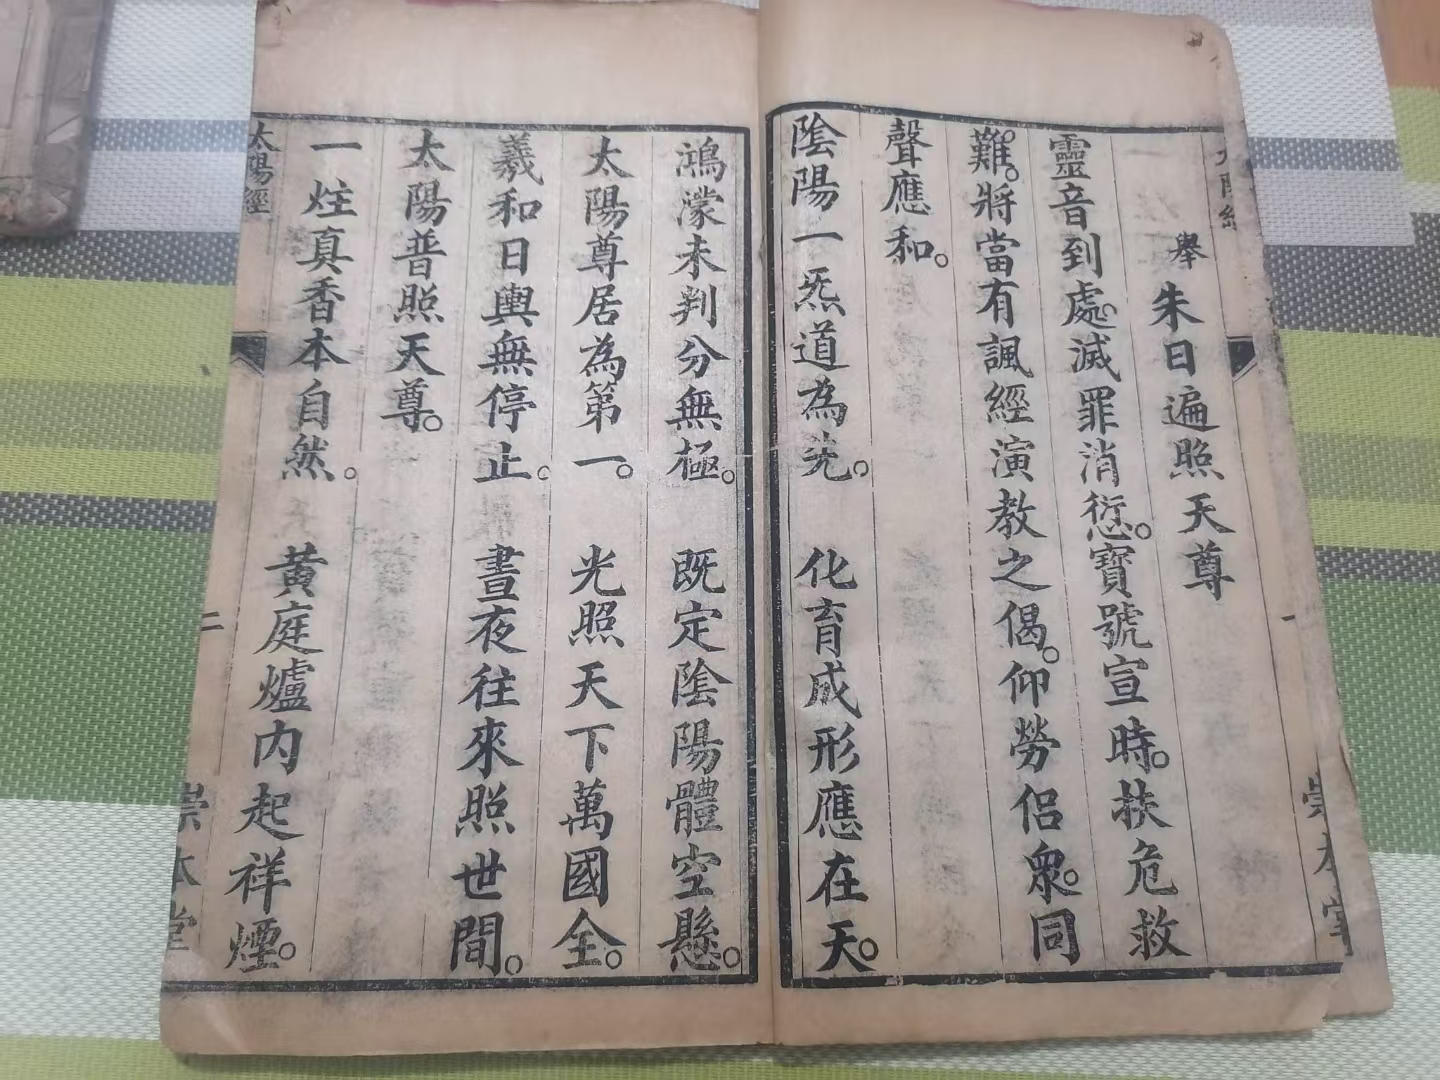 太陽經
一
崇本堂
舉　朱日遍照天尊
靈音到處。滅罪消愆。寶號宣時。扶危救
難。將當有諷經演教之偈。仰勞侶衆。同
聲應和。
陰陽一炁道為先。　化育成形應在天。
鴻濛未判分無極。　既定陰陽體空懸。
太陽尊居為第一。　光照天下萬國全。
羲和日輿無停止。　晝夜往來照世間。
太陽普照天尊。
一炷真香本自然。　黄庭爐内起祥煙。
太陽經
二
崇本堂